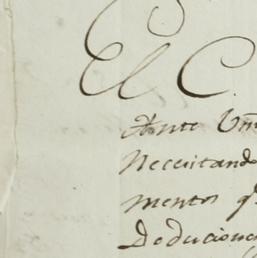 El C.
Ante Vm
Necesitando
mentos q
Deduciones